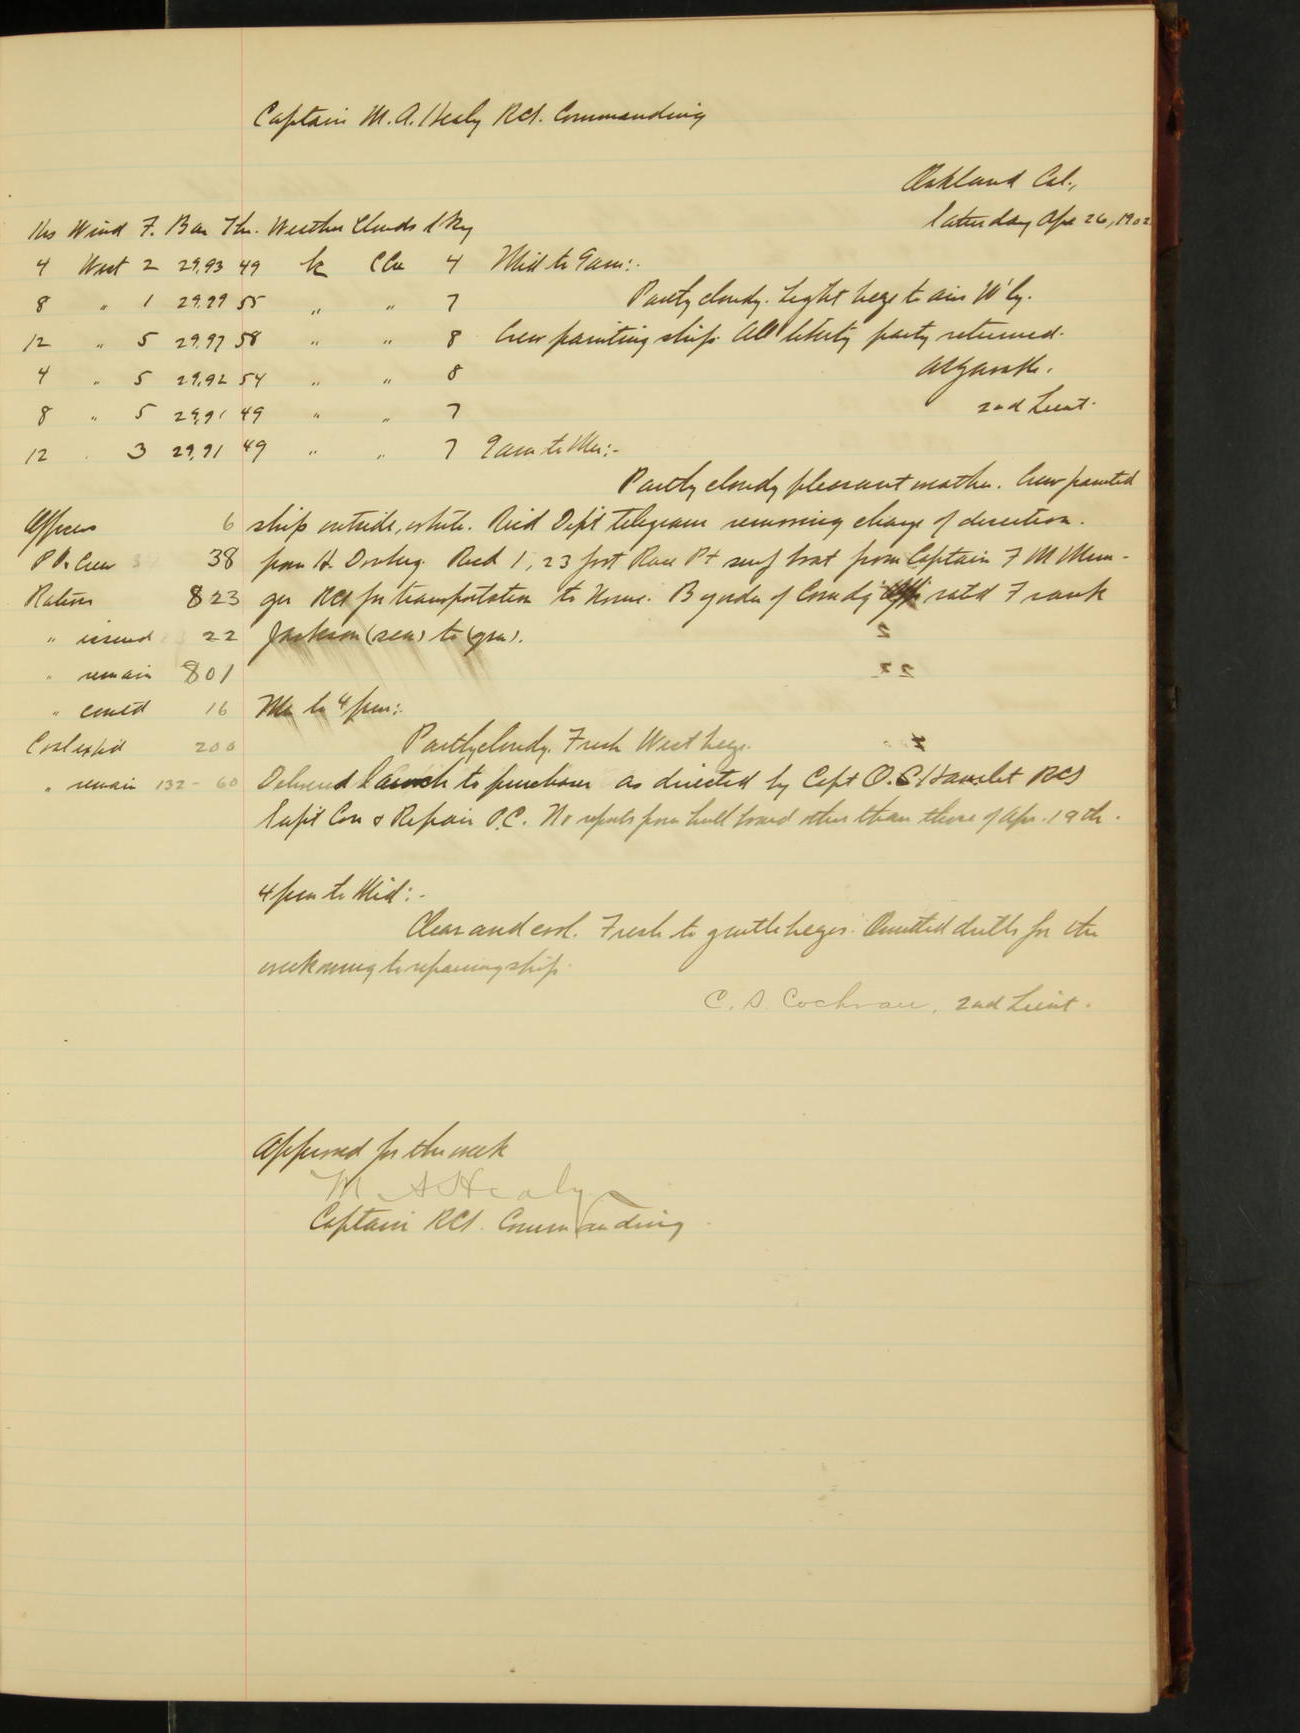 Captain M. A. Healy RCS. Commanding
Oakland Cal.,
Saturday Apr 26, 1902
Hrs Wind F. Bar Thr. Weather Clouds Sky
4 West 2 29.93 49 bc CCu 4 Mid to 9am:-
8 " 1 29.99 55 " " 7 Partly cloudy. Light bregs to airs W'ly.
12 " 5 29.97 58 " " 8 Crew painting ship. All liberty party returned.
4 " 5 29.92 54 " " 8
8 " 5 29.91 49 " " 7 2nd Lieut.
12 " 3 29.91 49 " " 7 9am to Mer:-
Partly cloudy pleasant weather. Crew painted
Officers 6 ship outside, white. Rec'd Dep't telegram removing charge of desertion
P.A. Crew 38 from H. Recd 1, 23 foot Race Pt surf boat from Captain F M Mun-
Rations 823 ger RCS for transportation to Nome. By order of Comdg rated Frank
" issued 22 Jackson (sea) to (qm).
" remain 801
" com'td 16 Mer to 4pm:-
Coal exp'd 200 Partly cloudy. Fresh West bregs.
" remain 132 - 60 Delivered launch to purchaser as directed by Capt O. C. Hamlet RCS
Supt Con & Repair P.C. No reports from hull board other than those of Apr. 19th.
4pm to Mid:-
Clear and cool. Fresh to gentle bregs. Omitted drills for the
week owing to repairing ship.
C. S. Cochran, 2nd Lieut.
Approved for the week
M A Healy
Captain RCS. Commanding